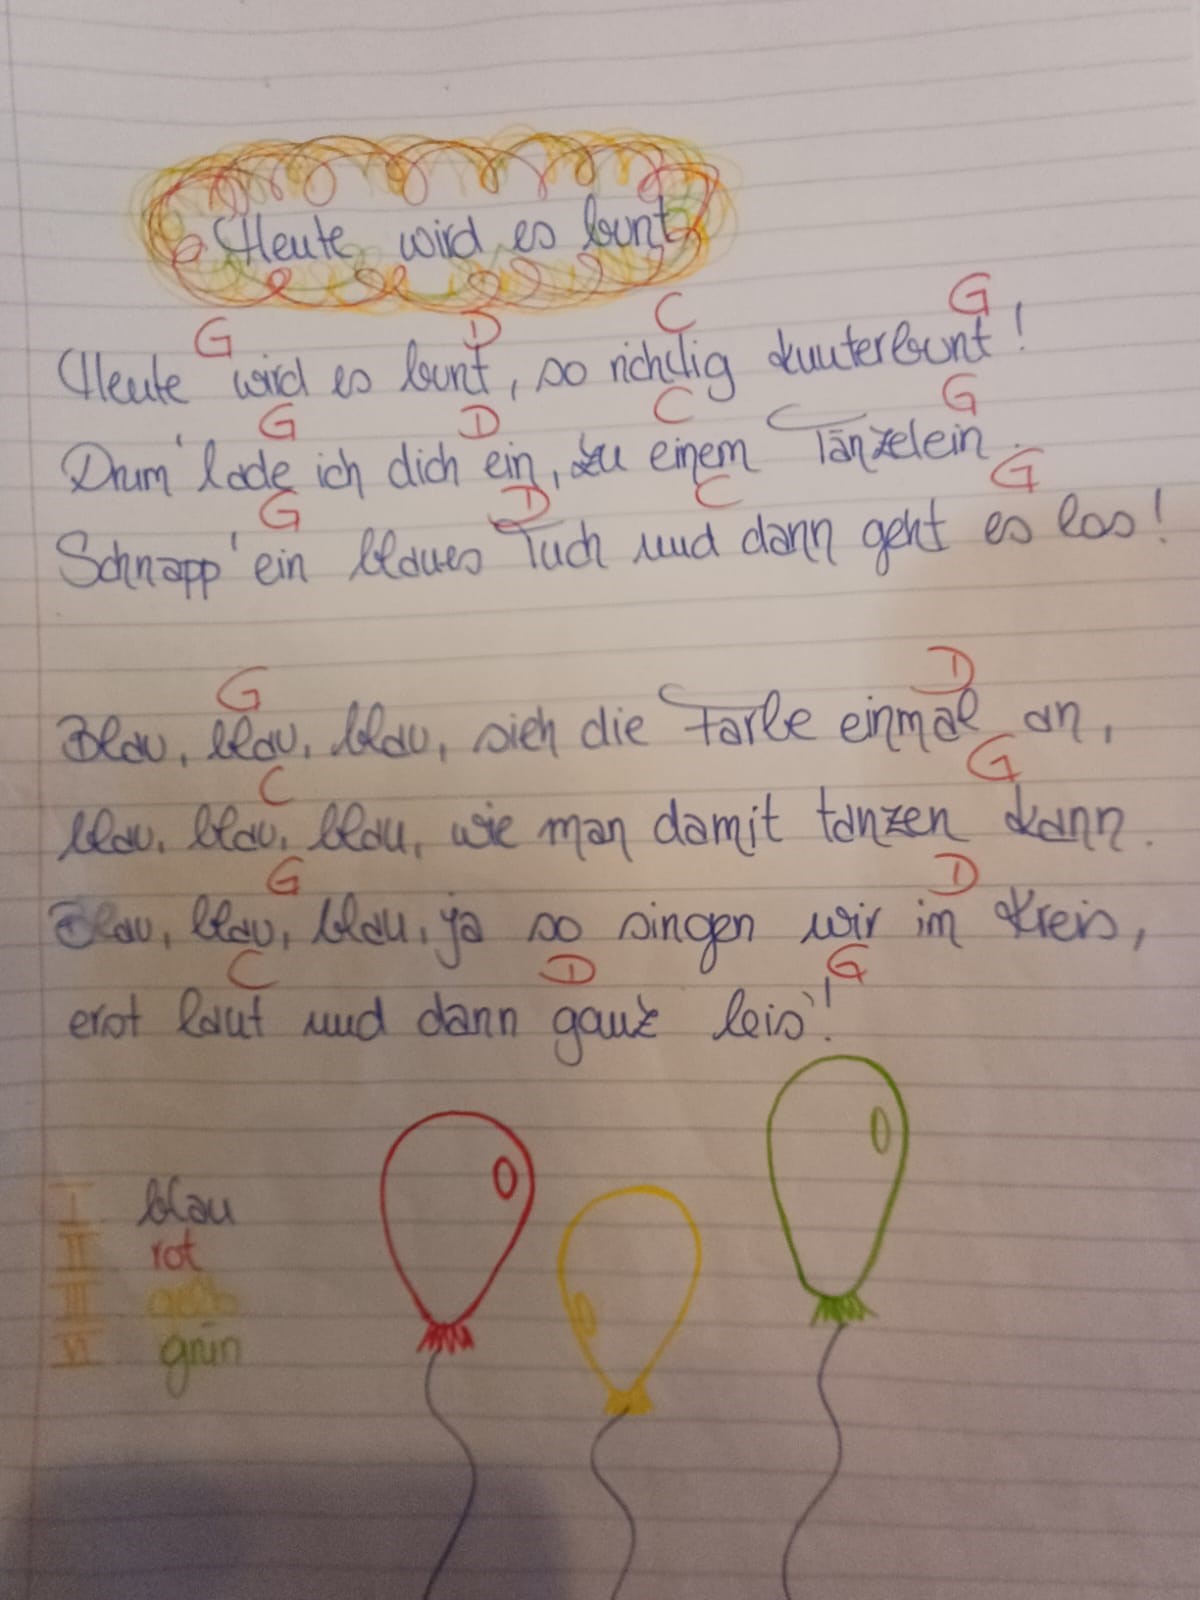 Heute wird es bunt
G D C G
Heute wird es bunt, so richtig kunterbunt!
G D C G
Drum' lade ich dich ein, zu einem Tänzelein.
G D C G
Schnapp' ein blaues Tuch und dann geht es los!
G D
Blau, blau, blau, sieh die Farbe einmal an,
C G
blau, blau, blau, wie man damit tanzen kann.
G D
Blau, blau, blau, ja so singen wir im Kreis,
C D G
erst laut und dann ganz leis'!
I blau
II rot
III gelb
VI grün